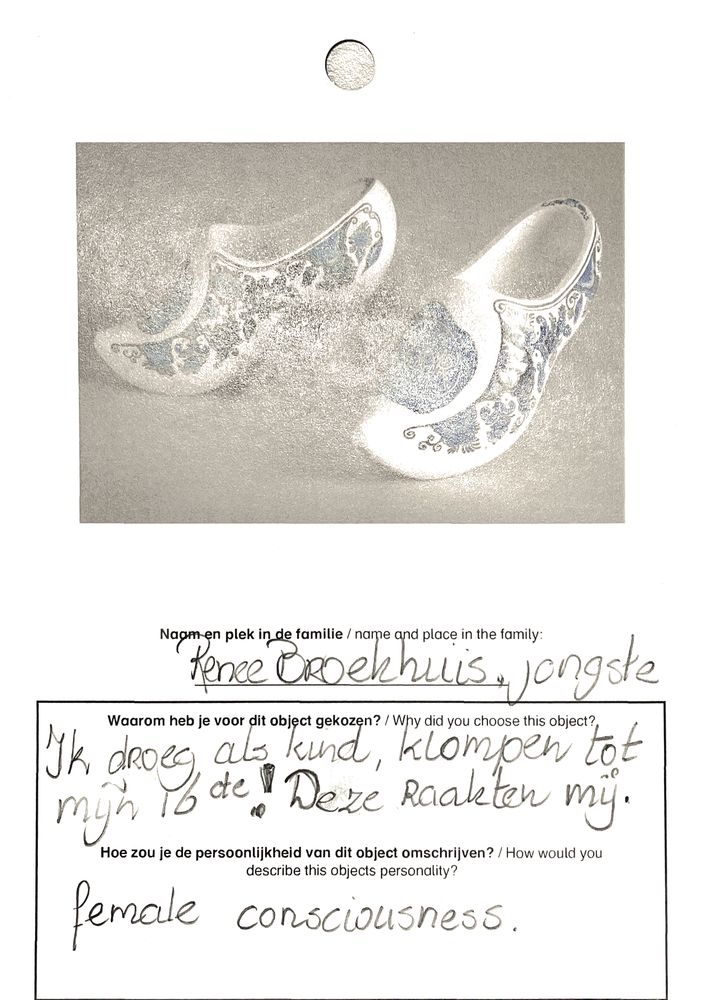 Naam en plek in de familie / name and place in the family:
Renee Broekhuis, jongste
Waarom heb je voor dit object gekozen? / Why did you choose this object?
Ik droeg als kind, klompen tot
mijn 16de! Deze Raakten mij.
Hoe zou je de persoonlijkheid van dit object omschrijven? / How would you
describe this objects personality?
female consciousness.